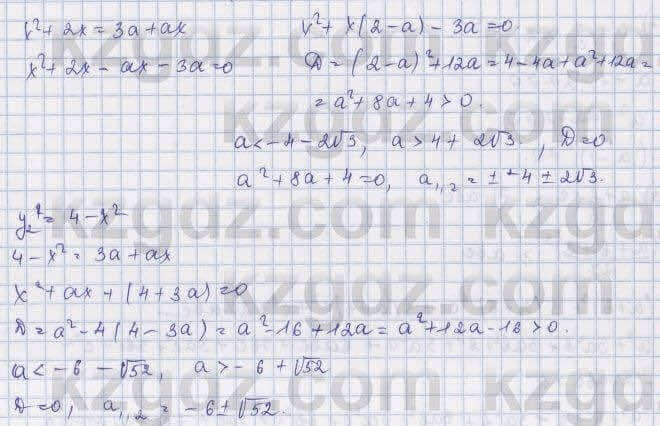 x² + 2x = 3a + ax
x² + 2x - ax - 3a = 0
x² + x(2-a) - 3a = 0.
D = (2-a)² + 12a = 4 - 4a + a² + 12a =
= a² + 8a + 4 > 0.
a < -4 - 2√3, a > 4 + 2√3, D = 0
a² + 8a + 4 = 0, a₁,₂ = ± -4 ± 2√3.
y₂² = 4 - x²
4 - x² = 3a + ax
x² + ax + (4 + 3a) = 0
D = a² - 4(4 - 3a) = a² - 16 + 12a = a² + 12a - 16 > 0.
a < -6 - √52, a > -6 + √52
D = 0, a₁,₂ = -6 ± √52.
kzgdz.com